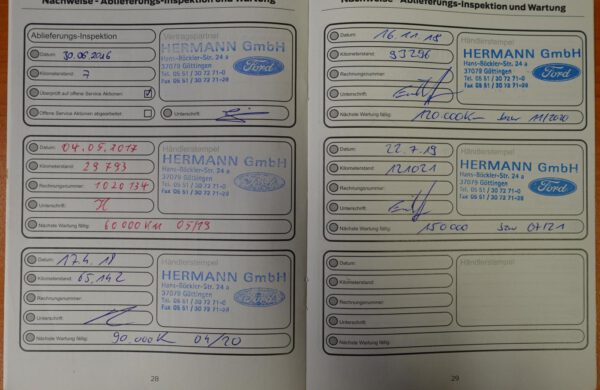 Nachweise - Ablieferungs-Inspektion und Wartung
Ablieferungs-Inspektion
Datum: 30.06.2016
Kilometerstand: 7
Überprüft auf offene Service Aktionen:
Offene Service Aktionen abgearbeitet:
Vertragspartner
HERMANN GmbH
Hans-Böckler-Str. 24 a
37079 Göttingen
Tel. 05 51 / 30 72 71-0
Fax 05 51 / 30 72 71-28
Ford
Unterschrift:
Datum: 04.05.2017
Kilometerstand: 29793
Rechnungsnummer: 1020134
Unterschrift:
Nächste Wartung fällig: 60000 KM 05/19
Händlerstempel
HERMANN GmbH
Hans-Böckler-Str. 24 a
37079 Göttingen
Tel. 05 51 / 30 72 71-0
Fax 05 51 / 30 72 71-28
Ford
Datum: 17.4.18
Kilometerstand: 65.142
Rechnungsnummer:
Unterschrift:
Nächste Wartung fällig: 90.000K 04/20
Händlerstempel
HERMANN GmbH
Hans-Böckler-Str. 24 a
37079 Göttingen
Tel. 05 51 / 30 72 71-0
Fax 05 51 / 30 72 71-28
Ford
28
Nachweise - Ablieferungs-Inspektion und Wartung
Datum: 16.11.18
Kilometerstand: 93296
Rechnungsnummer:
Unterschrift:
Nächste Wartung fällig: 120.000Km bzw 11/2020
Händlerstempel
HERMANN GmbH
Hans-Böckler-Str. 24 a
37079 Göttingen
Tel. 05 51 / 30 72 71-0
Fax 05 51 / 30 72 71-28
Ford
Datum: 22.7.19
Kilometerstand: 121021
Rechnungsnummer:
Unterschrift:
Nächste Wartung fällig: 150000 bzw 07/21
Händlerstempel
HERMANN GmbH
Hans-Böckler-Str. 24 a
37079 Göttingen
Tel. 05 51 / 30 72 71-0
Fax 05 51 / 30 72 71-28
Ford
Datum:
Kilometerstand:
Rechnungsnummer:
Unterschrift:
Nächste Wartung fällig:
Händlerstempel
29